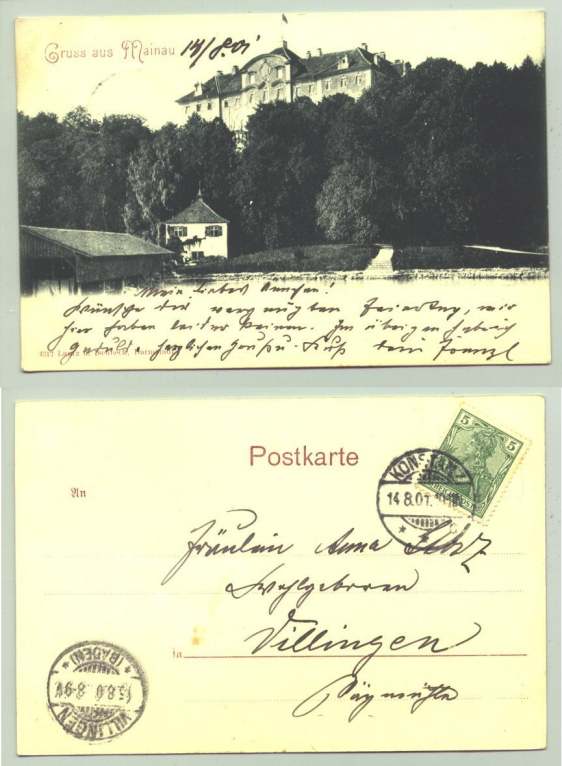 Gruss aus Mainau 14/8.01
Mein liebes Annchen!
Wünsche dir vergnügten Feiertag, wir
hier haben leider keinen. Im übrigen habe ich
Geduld. herzlichen Gruß u. Kuß dein Franzl
Postkarte
KONSTANZ
14.8.01.
5 5
REICHSPOST
An
Fräulein Anna
Wohlgeboren
in Villingen
Sägmühle
VILLINGEN
(BADEN)
15.8.0 8-9V